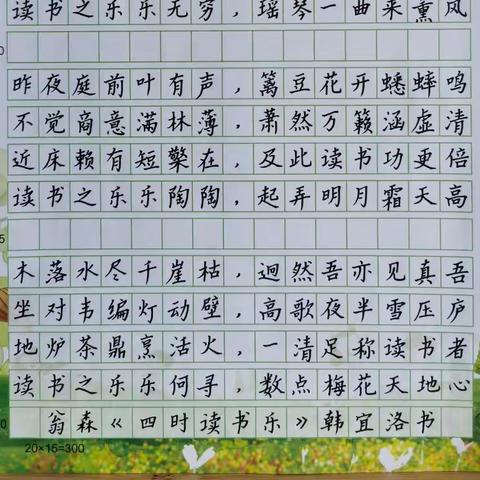 读书之乐乐无穷，瑶琴一曲来熏风
昨夜庭前叶有声，篱豆花开蟋蟀鸣
不觉商意满林薄，萧然万籁涵虚清
近床赖有短檠在，及此读书功更倍
读书之乐乐陶陶，起弄明月霜天高
木落水尽千崖枯，迥然吾亦见真吾
坐对韦编灯动壁，高歌夜半雪压庐
地炉茶鼎烹活火，一清足称读书者
读书之乐乐何寻，数点梅花天地心
翁森《四时读书乐》韩宜洛书
20×15=300